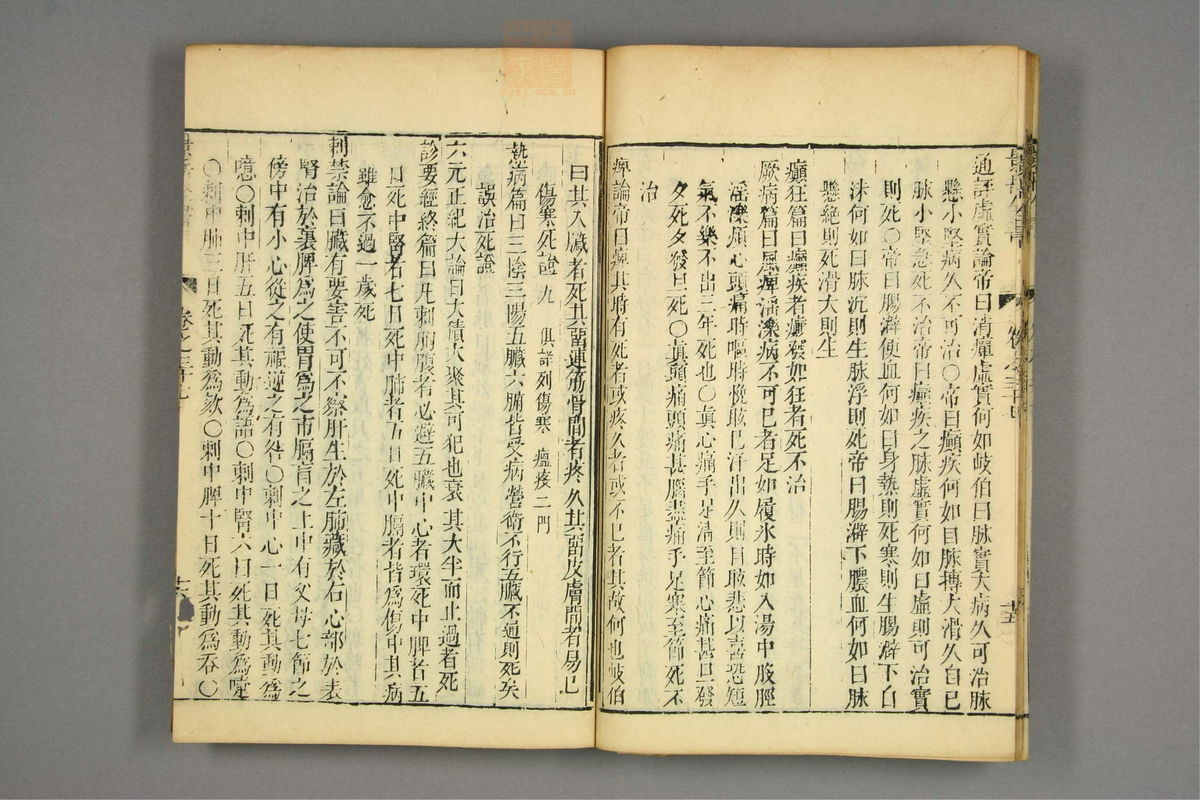 通評虛實論帝曰消癉虛實何如岐伯曰脉實大病久可治脉
懸小堅病久不可治〇帝曰癲疾何如曰脉搏大滑久自已
脉小堅急死不治帝曰癲疾之脉虛實何如曰虛則可治實
則死〇帝曰腸澼便血何如曰身熱則死寒則生腸澼下白
沫何如曰脉沉則生脉浮則死帝曰腸澼下膿血何如曰脉
懸絕則死滑大則生
癲狂篇曰癲疾者癲發如狂者死不治
厥病篇曰風痺淫濼病不可已者足如履氷時如入湯中股脛
淫濼煩心頭痛時嘔時悗眩已汗出久則目眩悲以喜恐短
氣不樂不出三年死也〇眞心痛手足凊至節心痛甚旦發
夕死夕發旦死〇眞頭痛頭痛甚腦盡痛手足寒至節死不
治
痺論帝曰痺其時有死者或疼久者或不已者其故何也岐伯
曰其入臟者死其畱連筋骨間者疼久其畱皮膚間者易已
傷寒死證 九 俱詳列傷寒 瘟疫二門
熱病篇曰三陰三陽五臟六腑皆受病營衛不行五臟不通則死矣
誤治死證
六元正紀大論曰大積大聚其可犯也衰其大半而止過者死
診要經終篇曰凡刺胸腹者必避五臟中心者環死中脾者五
日死中腎者七日死中肺者五日死中膈者皆爲傷中其病
雖愈不過一歲死
刺禁論曰臟有要害不可不察肝生於左肺藏於右心部於表
腎治於裏脾爲之使胃爲之市膈肓之上中有父母七節之
傍中有小心從之有福逆之有咎〇刺中心一日死其動爲
噫〇刺中肝五日死其動爲語〇刺中腎六日死其動爲嚏
〇刺中肺三日死其動爲欬〇刺中脾十日死其動爲吞〇